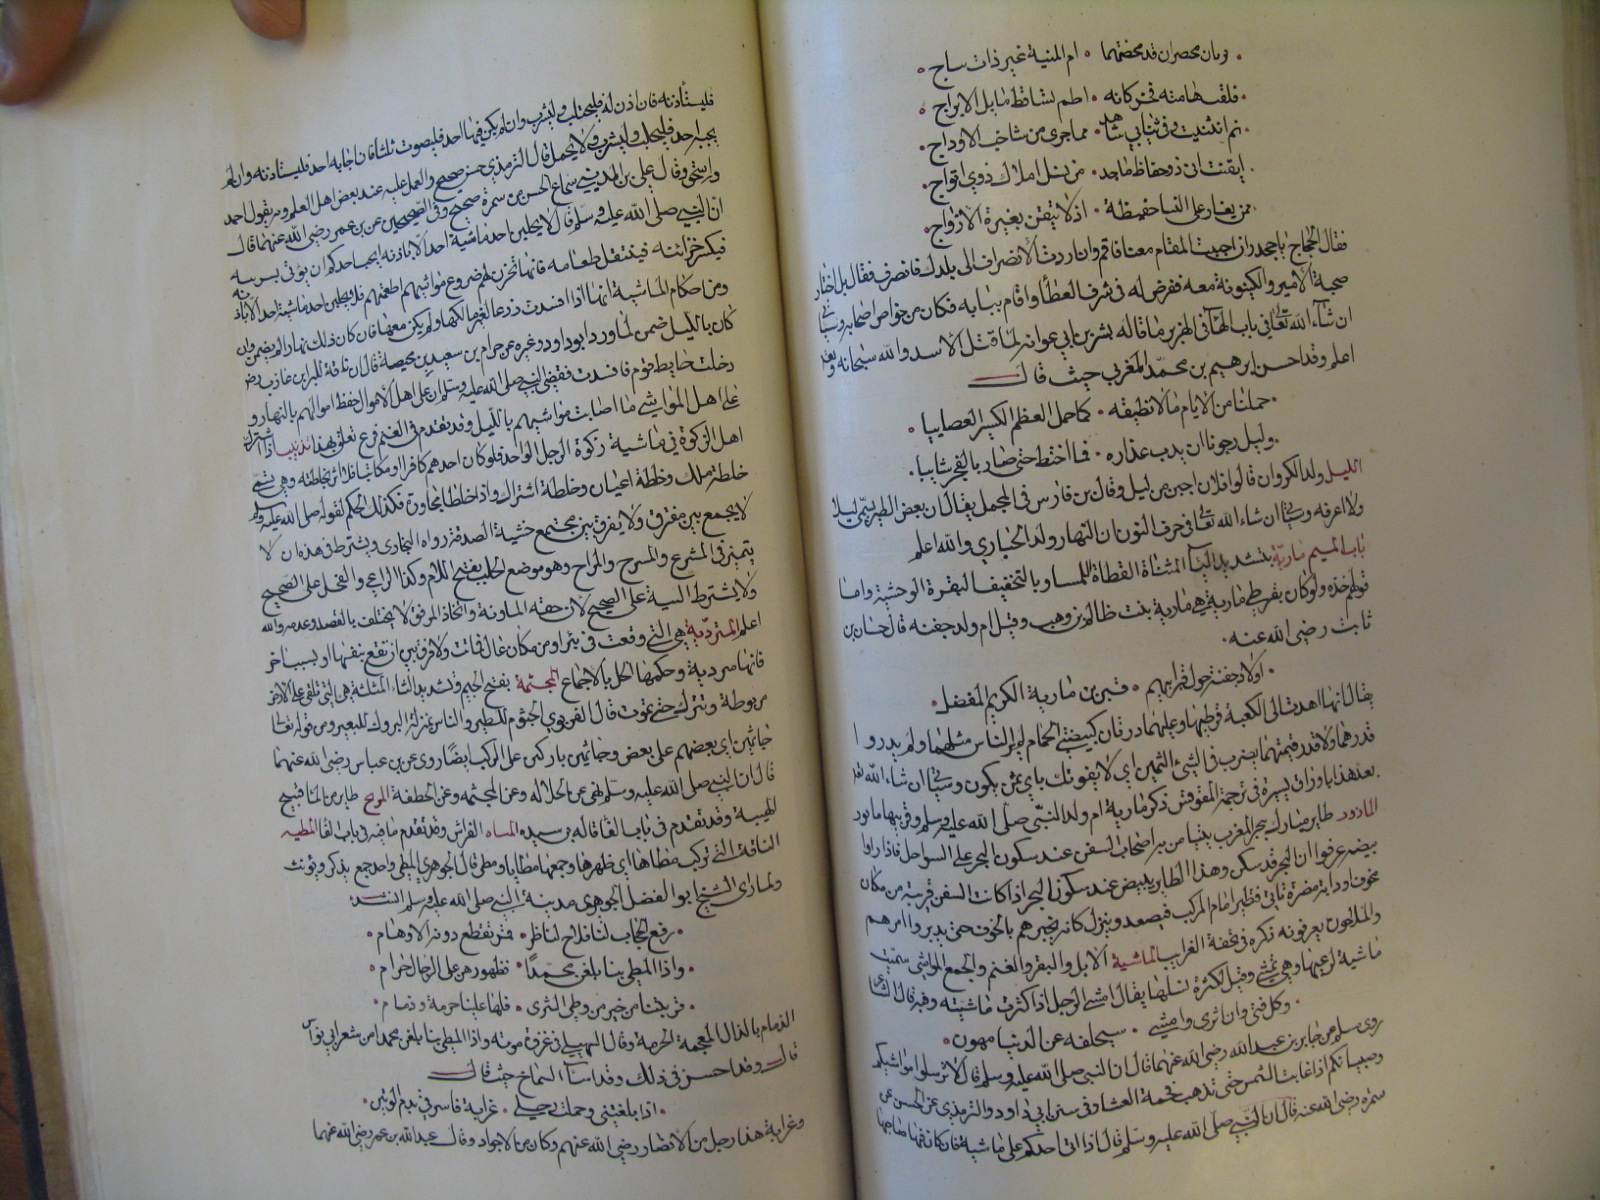 ومان محصران قد محضتهما • ام المنية غير ذات نساج
ففلقت هامته فخر كانه • اطم تساقط مايل الابراج
ثم انثنيت وفي ثيابي شاهد • مما جرى من شاخب الاوداج
ايقنت اني ذو حفاظ ماجد • من نسل املاك ذوي اتواج
ممن يغار على النسا حفيظة • اذ لا يثقن بغيرة الازواج
فقال الحجاج يا جحدر ان احببت المقام معنا فاقم وان اردت الانصراف الى بلدك فانصرف فقال بل اختار
صحبة الامير والكينونة معه ففرض له في شرف العطا واقام ببابه فكان من خواص اصحابه وسياتي
ان شاء الله تعالى في باب الها في الهزبر ما قاله بشر بن ابي عوانه لما قتل الاسد والله سبحانه وتعالى
اعلم وقد احسن ابرهيم بن محمد المغربي حيث قال
حملنا من الايام ما لا نطيقه • كما حمل العظم الكسير العصايبا
وليل رجونا ان يدب عذاره • فما اختط حتى صار بالفجر شايبا
الليل ولد الكروان قالوا فلان اجبن من ليل وقال بن فارس في المجمل يقال ان بعض الطير يسمى ليلا
ولا اعرفه وسياتي ان شاء الله تعالى في حرف النون ان النهار ولد الحباري والله اعلم
باب الميم مارية بتشديد اليا المثناة القطاة الملسا وبالتخفيف البقرة الوحشية واما
قولهم خذه ولو كان بقرطي مارية هي مارية بنت ظالم بن وهب وقيل ام ولد جفنه قال حسان بن
ثابت رضي الله عنه
اولاد جفنة حول قبر ابيهم • قبر بن مارية الكريم المفضل
يقال انها اهدت الى الكعبة قرطيها وعليهما درتان كبيضتي الحمام لم ير الناس مثلهما ولم يدروا
قدرهما ولا قدر قيمتهما يضرب في الشيء الثمين اي لا يفوتك باي ثمن يكون وسياتي ان شاء الله تعالى
بعد هذا باوراق يسيرة في ترجمة المقوقس ذكر مارية ام ولد النبي صلى الله عليه وسلم وقريبها مابور
المازور طاير مبارك ببحر المغرب يتيامن به اصحاب السفن عند سكون البحر على السواحل فاذا راوا
بيضه عرفوا ان البحر قد سكن وهذا الطاير يبيض عند سكون البحر اذا كانت السفن قريبة من مكان
مخوف او دابة مضرة تاتي فتطير امام المركب فيصعد وينزل كانه يخبرهم بالخوف حتى يدبروا امرهم
والملاحون يعرفونه ذكره في تحفة الغرايب الماشية الابل والبقر والغنم والجمع المواشي سميت
ماشية لرعيها وهي تمشي وقيل لكثرة نسلها يقال امشى الرجل اذا كثرت ماشيته وفيه قال الشاعر
وكل فتى وان اثرى وامشى • ستخلفه عن الدنيا منون
روى مسلم عن جابر بن عبد الله رضي الله عنهما قال ان النبي صلى الله عليه وسلم قال لا ترسلوا مواشيكم
وصبيانكم اذا غابت الشمس حتى تذهب فحمة العشا وفي سنن ابي داود والترمذي عن الحسن عن
سمرة رضي الله عنه قال ان النبي صلى الله عليه وسلم قال اذا اتى احدكم على ماشية فان كان فيها صاحبها
فليستأذنه فان اذن له فليحتلب وليشرب وان لم يكن فيها احد فليصوت ثلثا فان اجابه احد فليستاذنه وان لم
يجبه احد فليحلب وليشرب ولا يحمل قال الترمذي حسن صحيح والعمل عليه عند بعض اهل العلم وبه يقول احمد
واسحق وقال علي بن المديني سماع الحسن من سمرة صحيح وفي الصحيحين عن بن عمر رضي الله عنهما قال
ان النبي صلى الله عليه وسلم قال لا يحلبن احد ماشية احد الا باذنه ايحب احدكم ان يؤتى مشربته
فيكسر خزانته فينتقل طعامه فانما تخزن لهم ضروع مواشيهم اطعمتهم فلا يحلبن احد ماشية احد الا باذنه
ومن احكام الماشية انها اذا افسدت زرعا لغير مالكها ولم يكن معها فان كان ذلك نهارا لم يضمن وان
كان بالليل ضمن لما ورد ابو داود وغيره عن حرام بن سعيد بن محيصة قال ان ناقة للبرا بن عازب رض
دخلت حايط قوم فافسدت فقضى النبي صلى الله عليه وسلم ان على اهل الاموال حفظ اموالهم بالنهار و
على اهل المواشي ما اصابت مواشيهم بالليل وقد تقدم في الغنم فرع تعلق بهذا تذنيب اذا اشترك
اهل الزكوة في ماشية زكوة الرجل الواحد فلو كان احدهم كافرا او مكاتبا فلا اثر لخلطته وهي تسمى
خلطة ملك وخلطة اعيان وخلطة اشتراك واذا خلطا مجاورة فكذلك الحكم لقوله صلى الله عليه وسلم
لا يجمع بين مفترق ولا يفرق بين مجتمع خشية الصدقة رواه البخارى ويشترط في هذه ان لا
يتميز في المشرع والمسرح والمراح وهو موضع الحلب بفتح اللام وكذا الراعي والفحل على الصحيح
ولا يشترط النية على الصحيح لان خفة المؤنة واتحاد المرفق لا يختلف بالقصد وعدمه والله
اعلم المتردية هي التي وقعت في بئر او من مكان عال فماتت ولا فرق بين ان تقع بنفسها او بسبب اخر
فانها متردية وحكمها الحل بالاجماع المجثمة بفتح الجيم وتشديد الثاء المثلثة هي التي تلقى على الارض
مربوطة وتترك حتى تموت قال الفربوي الجثوم للطير والناس بمنزلة البروك للبعير ومن قوله تعالى
جاثمين اي بعضهم على بعض وجاثمين باركين على الركب ايضا روى عن بن عباس رضي الله عنهما
قال ان النبي صلى الله عليه وسلم نهى عن الجلالة وعن المجثمه وعن الخطفة المرح طاير من الما قبيح
الهيبة وقد تقدم في باب القا قاله بن سيده المساه الفراش وقد تقدم ما فيه في باب الفا المطيه
الناقة التي تركب مطاها اي ظهرها وجمعها مطايا ومطي قال الجوهري المطي واحد جمع يذكر ويؤنث
ولما راى الشيخ ابو الفضل الجوهرى مدينة النبي صلى الله عليه وسلم انشد
رفع الحجاب لنا فلاح لناظر • قمر تقطع دونه الاوهام
واذا المطي بنا بلغن محمدا • فظهورهن على الرجال حرام
قربننا من خير من وطي الثرى • فلها علينا حرمة وذمام
الذمام بالذال المعجمة الحرمة وقال السهيلي في غزوة مؤتة واذا المطي بنا بلغن محمدا من شعر ابي نواس
قال وقد احسن في ذلك وقد اسا الشماخ حيث قال
اذا بلغتني وحملت رحلي • عرابة فاسرقي بدم الوتين
وعرابة هذا رجل من الانصار رضي الله عنهم وكان من الاجواد وقال عبد الله بن عمر رضي الله عنهما